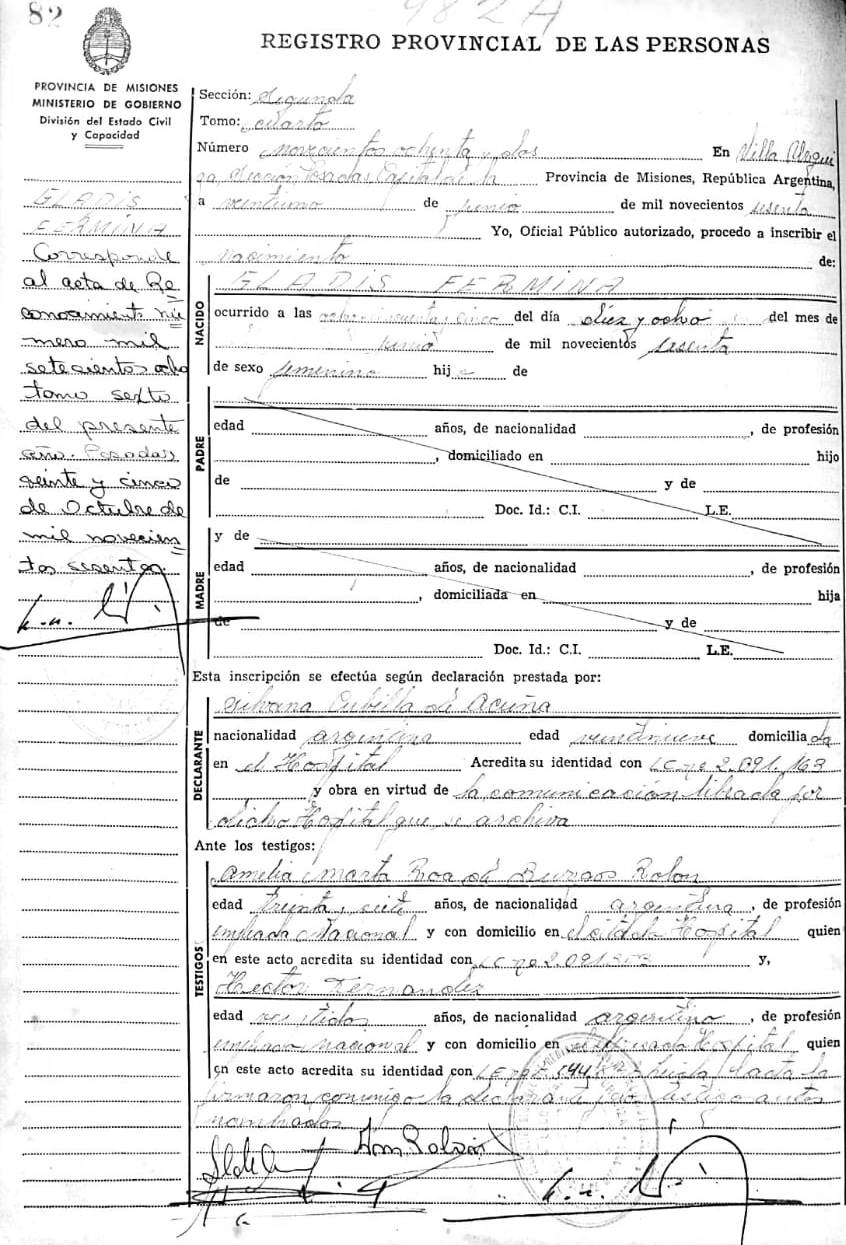 82
982 A
REGISTRO PROVINCIAL DE LAS PERSONAS
PROVINCIA DE MISIONES
MINISTERIO DE GOBIERNO
División del Estado Civil
y Capacidad
GLADIS
FERMINA
Corresponde
al acta de Re
conocimiento nú
mero mil
setecientos ocho
tomo sexto
del presente
año. Posadas
veinte y cinco
de Octubre de
mil novecien
tos sesenta.
Sección: Segunda
Tomo: cuarto
Número novecientos ochenta y dos En Villa Urqui
za, Sección Posadas, Capital de la Provincia de Misiones, República Argentina,
a veintiuno de junio de mil novecientos sesenta
Yo, Oficial Público autorizado, procedo a inscribir el
nacimiento de:
NACIDO
GLADIS FERMINA
ocurrido a las cincuenta y cinco del día diez y ocho del mes de
junio de mil novecientos sesenta
de sexo femenino hij a de
PADRE
edad años, de nacionalidad , de profesión
, domiciliado en hijo
de y de
Doc. Id.: C.I. L.E.
MADRE
y de
edad años, de nacionalidad , de profesión
, domiciliada en hija
de y de
Doc. Id.: C.I. L.E.
Esta inscripción se efectúa según declaración prestada por:
DECLARANTE
Silvana Cubilla de Acuña
nacionalidad argentina edad veintinueve domicilia da
en el Hospital Acredita su identidad con LC nº 2.091.163
y obra en virtud de la comunicación librada por
dicho Hospital que se archiva
Ante los testigos:
TESTIGOS
Amelia Marta Roa de Burgos Rolon
edad treinta y siete años, de nacionalidad argentina , de profesión
empleada Nacional y con domicilio en el citado Hospital quien
en este acto acredita su identidad con LC nº 2.091. y,
Hector Fernandez
edad años, de nacionalidad argentino , de profesión
empleado nacional y con domicilio en Hospital quien
en este acto acredita su identidad con LE nº Leída el acta la
firmaron conmigo la declarante y los testigos antes
nombrados